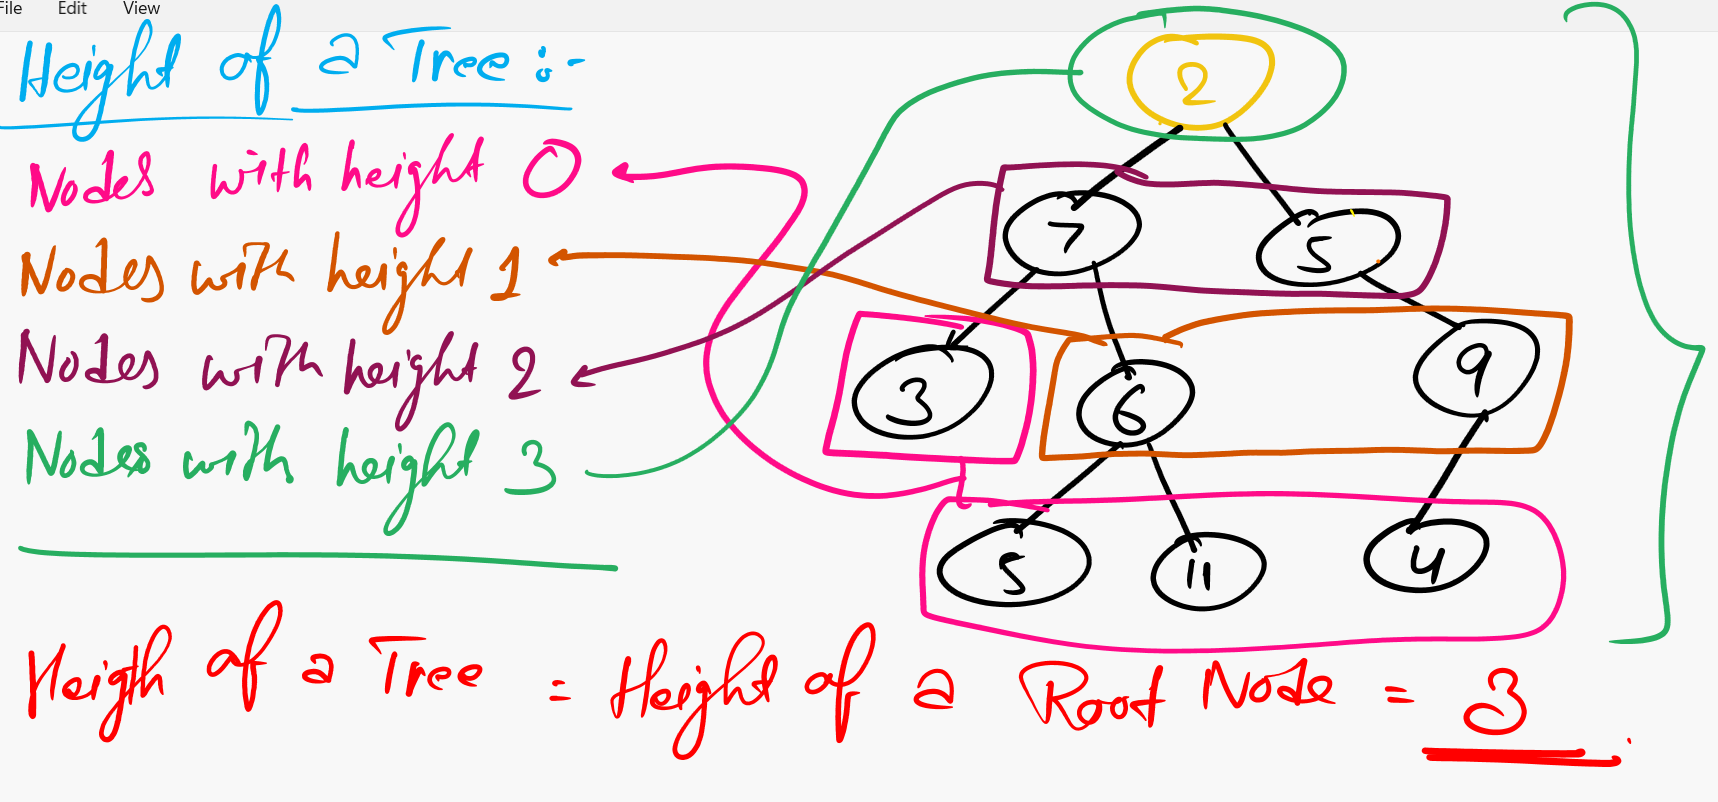 File Edit View
Height of a Tree :-
Nodes with height 0
Nodes with height 1
Nodes with height 2
Nodes with height 3
2
7 5
3 6 9
5 11 4
Heigth of a Tree = Height of a Root Node = 3